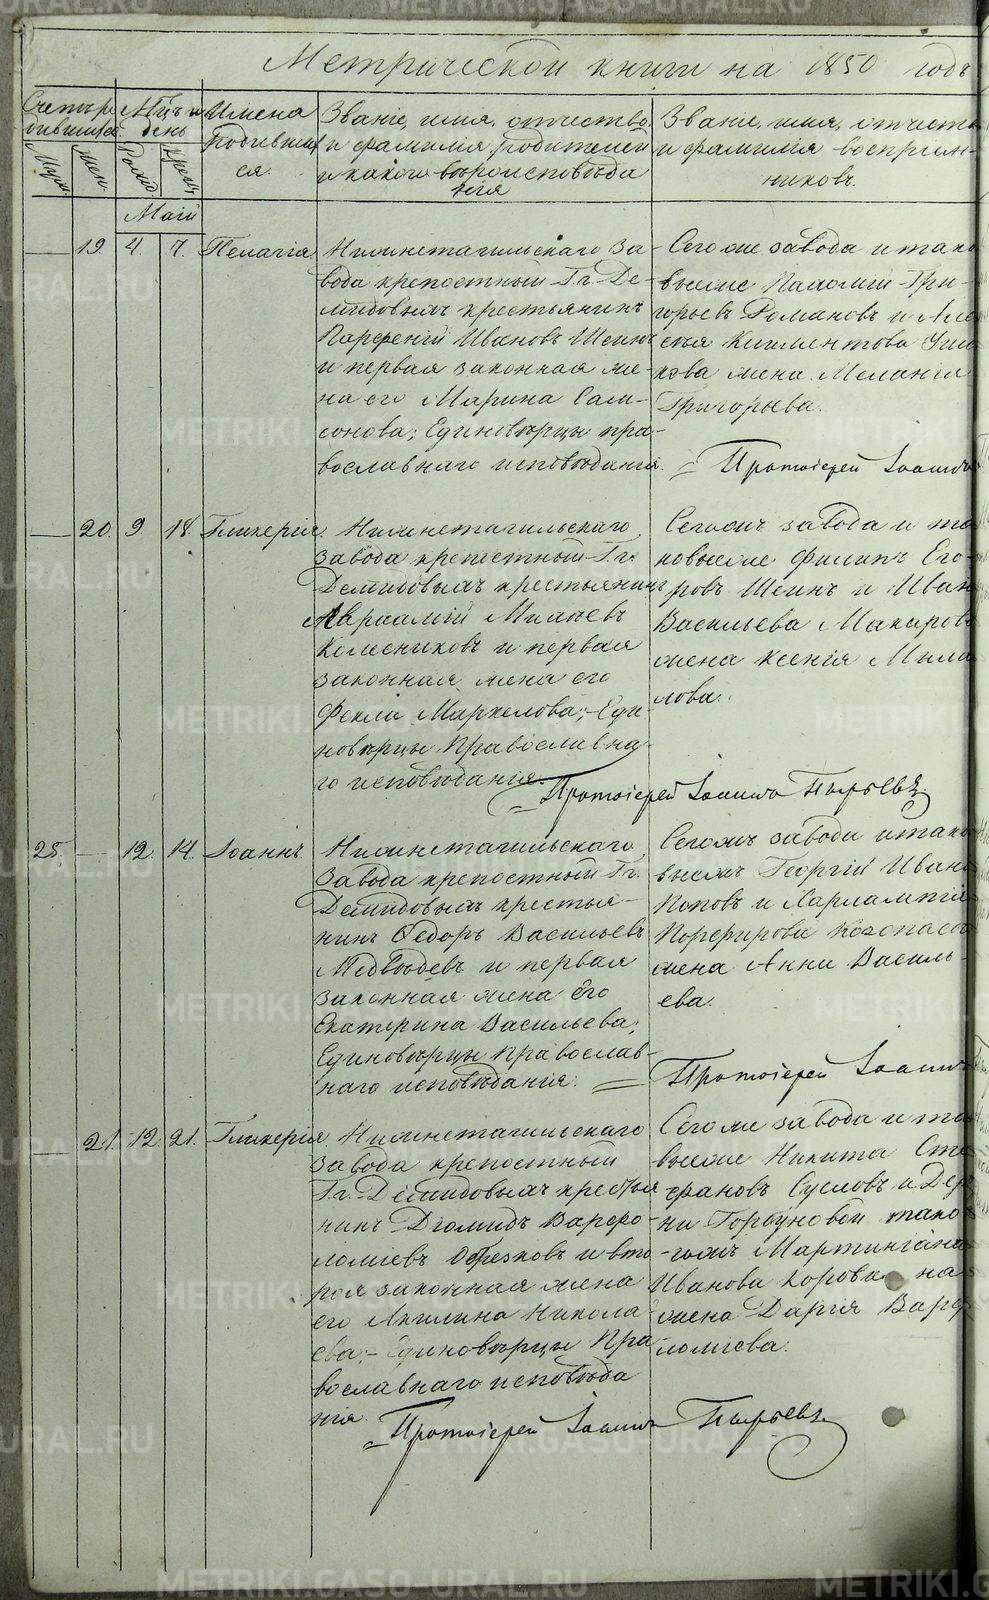 Метрической книги на 1850 годъ
Счетъ родившихся
Муж.
Жен.
Мѣц. и день
Рожд.
Крещ.
Имена родившихся.
Званіе, имя, отчество,
и фамилія родителей
и какого вѣроисповѣда
нія
Званіе, имя, отчеств
и фамилія воспріем-
никовъ.
Маій
19. 4. 7. Пелагія
Нижнетагильскаго за-
вода крепостный Гг. Де-
мидовыхъ крестьянинъ
Парфеній Ивановъ Шеинъ
и первая законная же-
на его Марина Сам-
сонова; Единовѣрцы пра-
вославнаго исповѣданія.
Сего же завода и тако
выеже Григорьевъ Романовъ и
жена Меланія
Григорьева.
Протоіерей Іоаннъ
20. 9. 18. Гликерія.
Нижнетагильскаго
завода крепостный Гг.
Демидовыхъ крестьянинъ
Авраамій
Колесниковъ и первая
законная жена его
Фекла Маркелова; Еди-
новѣрцы Православна-
го исповѣданія.
Сегожъ завода и та
ковыеже Филипъ Его-
ровъ Шеинъ и Иван
Васильева Макаров
жена Ксенія
лова.
Протоіерей Іоаннъ Пырьевъ
25. 12. 14. Іоаннъ.
Нижнетагильскаго
завода крепостный Гг.
Демидовыхъ крестья-
нинъ Ѳедоръ Васильевъ
Медвѣдевъ и первая
законная жена его
Екатерина Васильева;
Единовѣрцы православ-
наго исповѣданія.
Сегожъ завода и тако
выежъ Георгій Ивано
Поповъ и Харлампія
Порфирова
жена Анна Василь-
ева.
Протоіерей Іоаннъ
21. 12. 21. Гликерія
Нижнетагильскаго
завода крепостный
Гг. Демидовыхъ крестья
нинъ Діомидъ Варфо-
ломіевъ Обрезковъ и вто-
рая законная жена
его Акилина Никола-
ева; Единовѣрцы Пра
вославнаго исповѣда
нія.
Сего же завода и та
выеже Никита Сте
фановъ Сусловъ и Дер
ни Горбуновой тако-
гожъ Мартиніана
Иванова Корова на
жена Дарія Варф
ломіева.
Протоіерей Іоаннъ Пырьевъ
METRIKI.GASO-URAL.RU